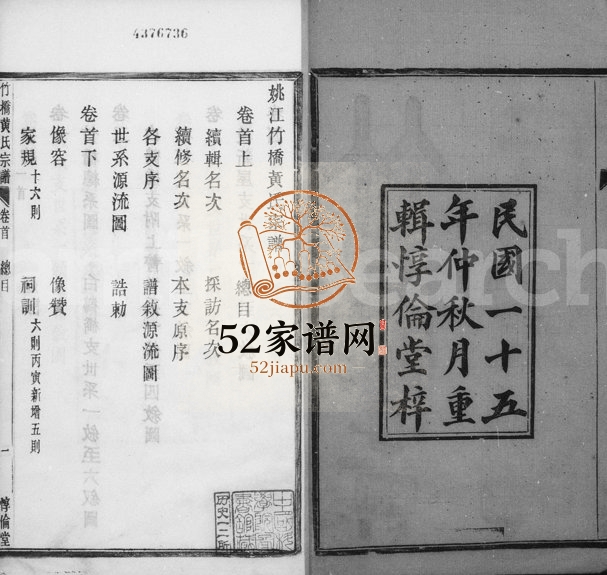 4376736
民國一十五
年仲秋月重
輯惇倫堂梓
姚江竹橋黃
卷首上 總目
續輯名次 採訪名次
續修名次 本支原序
各支序 譜敘源流圖
世系源流圖 誥勅
卷首下
像容 像贊
家規十六則 祠訓六則丙寅新增五則
竹橋黃氏宗譜 卷首 總目 一 惇倫堂
52家谱网
52jiapu.com